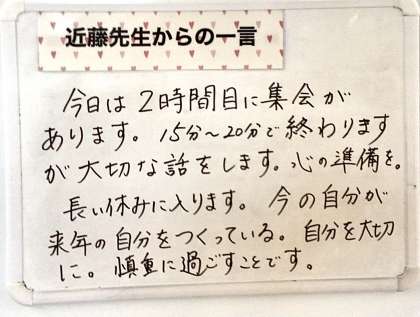 近藤先生からの一言
今日は2時間目に集会が
あります。15分～20分で終わります
が大切な話をします。心の準備を。
長い休みに入ります。今の自分が
来年の自分をつくっている。自分を大切
に。慎重に過ごすことです。